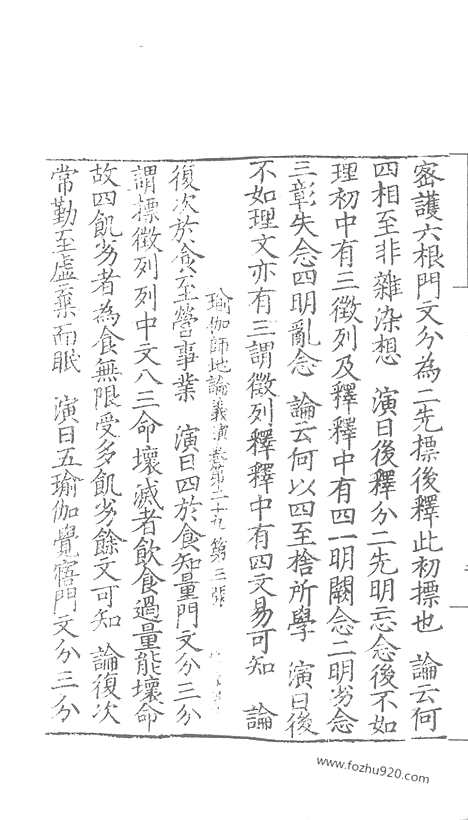 密護六根門文分為二先標後釋此初標也　論云何
四相至非雜染想　演曰後釋分二先明忘念後不如
理初中有三徵列及釋釋中有四一明闕念二明劣念
三彰失念四明亂念　論云何以四至捨所學　演曰後
不如理文亦有三謂徵列釋釋中有四文易可知　論
瑜伽師地論義演卷第二十九　第三張
復次於食至營事業　演曰四於食知量門文分三分
謂標徵列列中文八三命壞滅者飲食過量能壞命
故四飢劣者為食無限受多飢劣餘文可知　論復次
常勤至虛棄而眠　演曰五瑜伽覺寤門文分三分
www.fozhu920.com